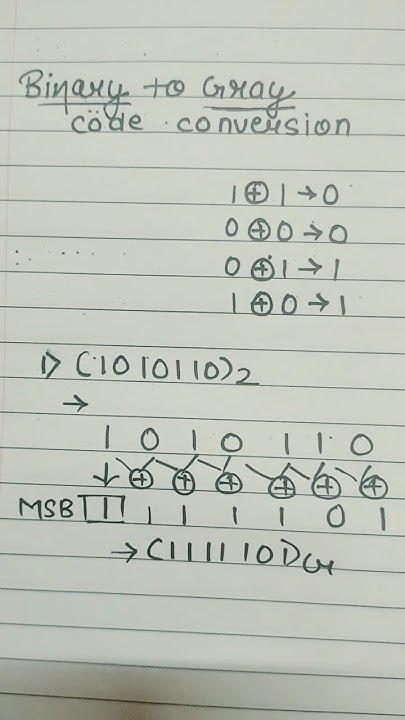 Binary to Gray
code conversion
1 ⊕ 1 → 0
0 ⊕ 0 → 0
0 ⊕ 1 → 1
1 ⊕ 0 → 1
1) (1010110)2
→
1 0 1 0 1 1 0
↓ ⊕ ⊕ ⊕ ⊕ ⊕ ⊕
MSB 1 1 1 1 1 0 1
→ (1111101)Gr